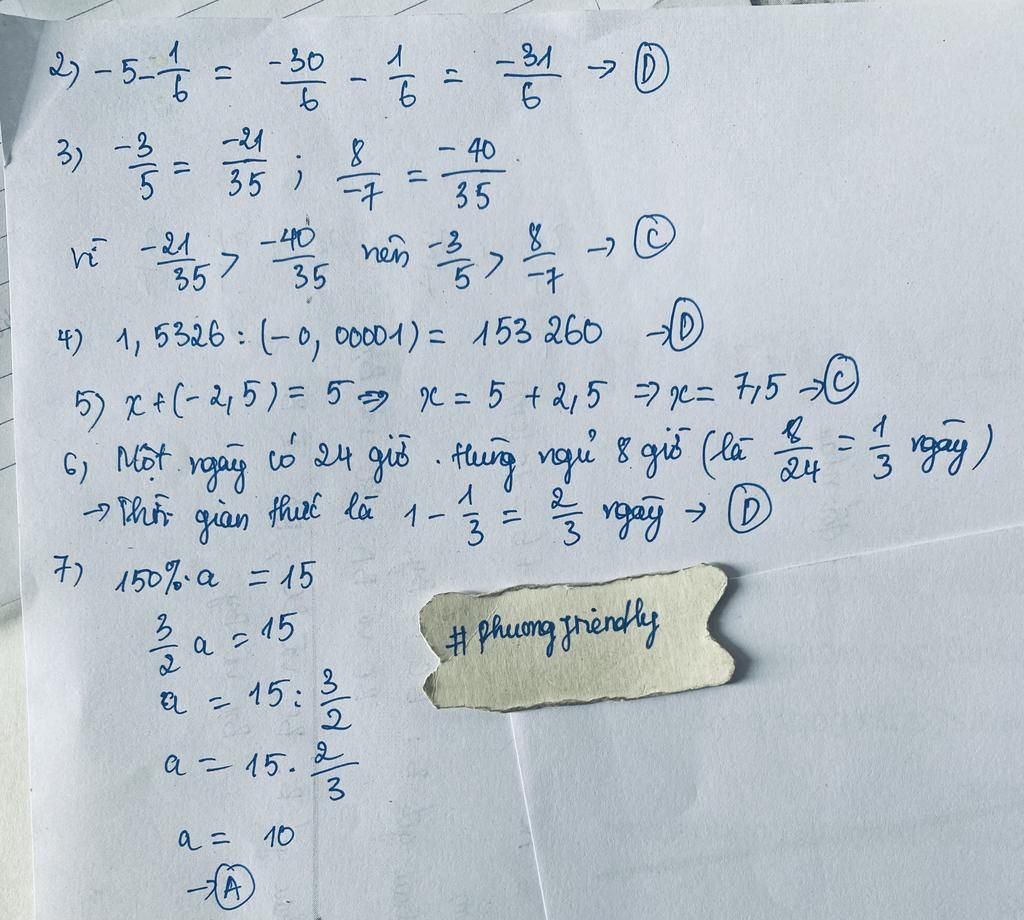 2) -5-1/6 = -30/6 - 1/6 = -31/6 → D
3) -3/5 = -21/35 ; 8/-7 = -40/35
vì -21/35 > -40/35 nên -3/5 > 8/-7 → C
4) 1,5326 : (-0,00001) = 153 260 → D
5) x + (-2,5) = 5 => x = 5 + 2,5 => x = 7,5 → C
6) Một ngày có 24 giờ. Hưng ngủ 8 giờ (là 8/24 = 1/3 ngày)
→ Thời gian thức là 1 - 1/3 = 2/3 ngày → D
7) 150%·a = 15
3/2 a = 15
a = 15 : 3/2
a = 15 . 2/3
a = 10
→ A
#phuongfriendly